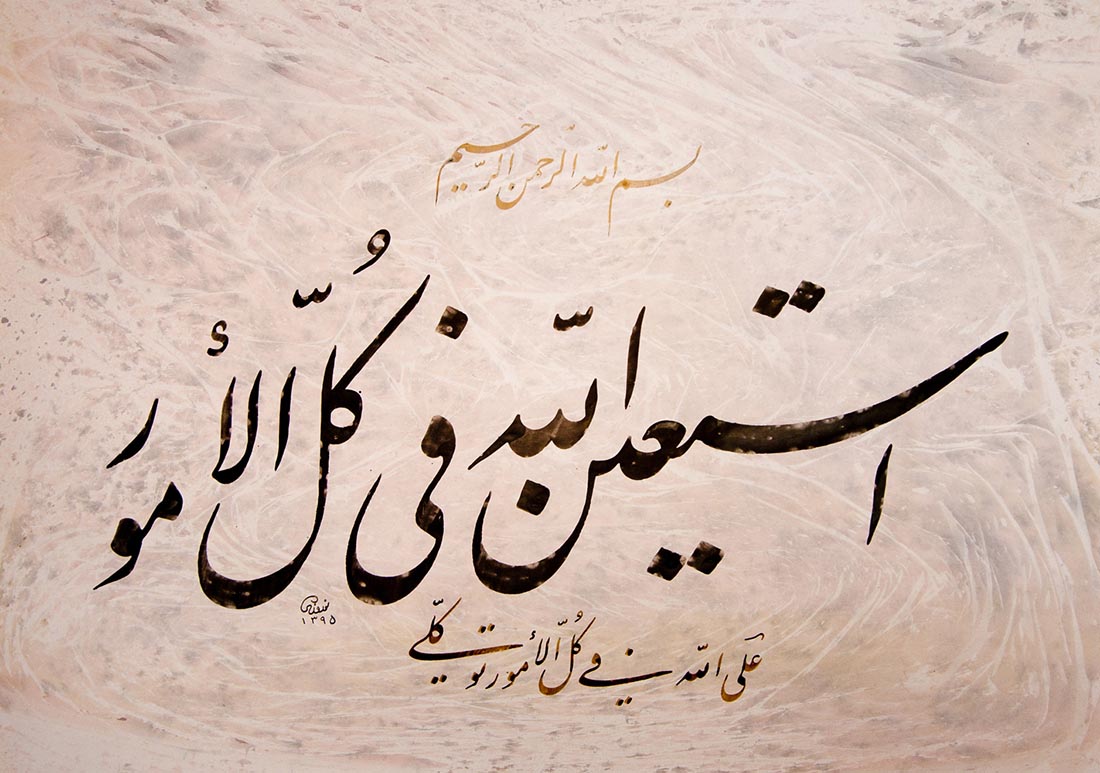 بسم الله الرحمن الرحیم
استعین الله فی کُلّ الأمور
۱۳۹۵
علی الله فی کُلّ الأمور توکّلی